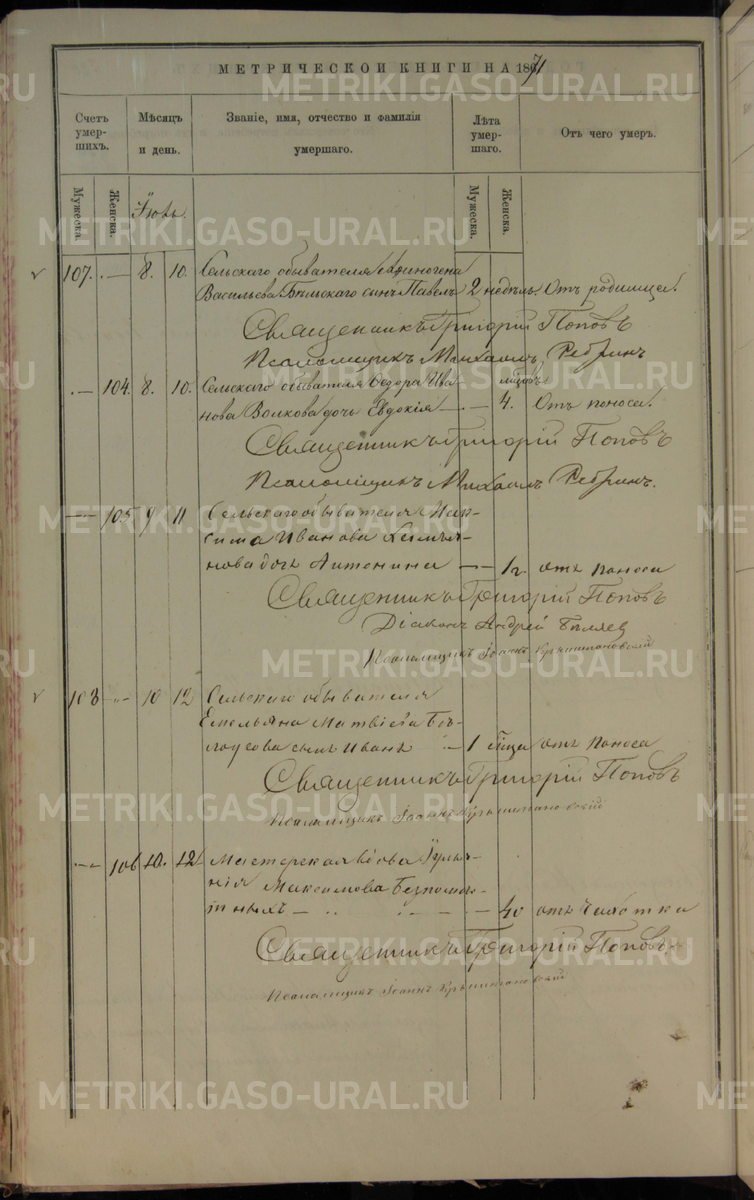 МЕТРИЧЕСКОЙ КНИГИ НА 1871
Счетъ умершихъ.
Мѣсяцъ и день.
Званіе, имя, отчество и фамилія умершаго.
Лѣта умершаго.
Отъ чего умеръ.
Мужеска.
Женска.
Мужеска.
Женска.
107. — 8. 10. Сельскаго обывателя Афиногена
Васильева Бѣльскаго сынъ Павелъ 2 недѣль. Отъ родимца.
Священникъ Григорій Поповъ
Псаломщикъ Михаилъ Ребринъ
— 104. 8. 10. Сельскаго обывателя Ѳедора Ива-
нова Волкова дочь Евдокія — — 4. Отъ поноса.
Священникъ Григорій Поповъ
Псаломщикъ Михаилъ Ребринъ.
— 105 9 11 Сельскаго обывателя
Иванова
дочь Антонина — — 1 г. отъ поноса
Священникъ Григорій Поповъ
Діаконъ Андрей Бѣляев
Псаломщикъ Іоаннъ
108 — 10 12 Сельскаго обывателя
Емельяна Матвіева Бѣ-
лоусова сынъ Иванъ — 1 отъ поноса
Священникъ Григорій Поповъ
Псаломщикъ Іоаннъ
— 106 10. 12 Мастерская вдова
Максимова Безпомощ-
ныхъ — — 40 отъ чахотки
Священникъ Григорій Поповъ
Псаломщикъ Іоаннъ
METRIKI.GASO-URAL.RU